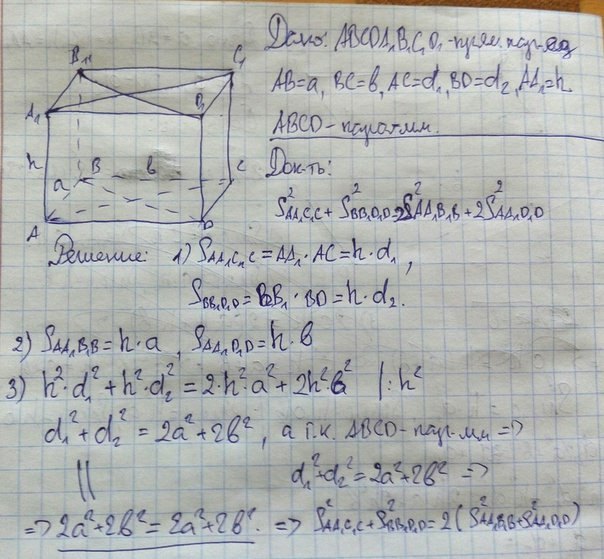 Дано: ABCDA₁B₁C₁D₁ - прям. пар-ед
AB=a, BC=b, AC=d₁, BD=d₂, AA₁=h.
ABCD - парал-мм.
Док-ть:
S²AA₁C₁C + S²BB₁D₁D = 2S²AA₁B₁B + 2S²AA₁D₁D
B₁
C₁
A₁
D₁
h
a
B
b
C
A
D
Решение: 1) SAA₁C₁C = AA₁ · AC = h · d₁,
SBB₁D₁D = BB₁ · BD = h · d₂.
2) SAA₁B₁B = h · a, SAA₁D₁D = h · b
3) h² · d₁² + h² · d₂² = 2 · h² · a² + 2h² b² |: h²
d₁² + d₂² = 2a² + 2b², а т.к. ABCD - пар-мм =>
|| d₁² + d₂² = 2a² + 2b² =>
=> 2a² + 2b² = 2a² + 2b². => S²AA₁C₁C + S²BB₁D₁D = 2(S²AA₁B₁B + S²AA₁D₁D)